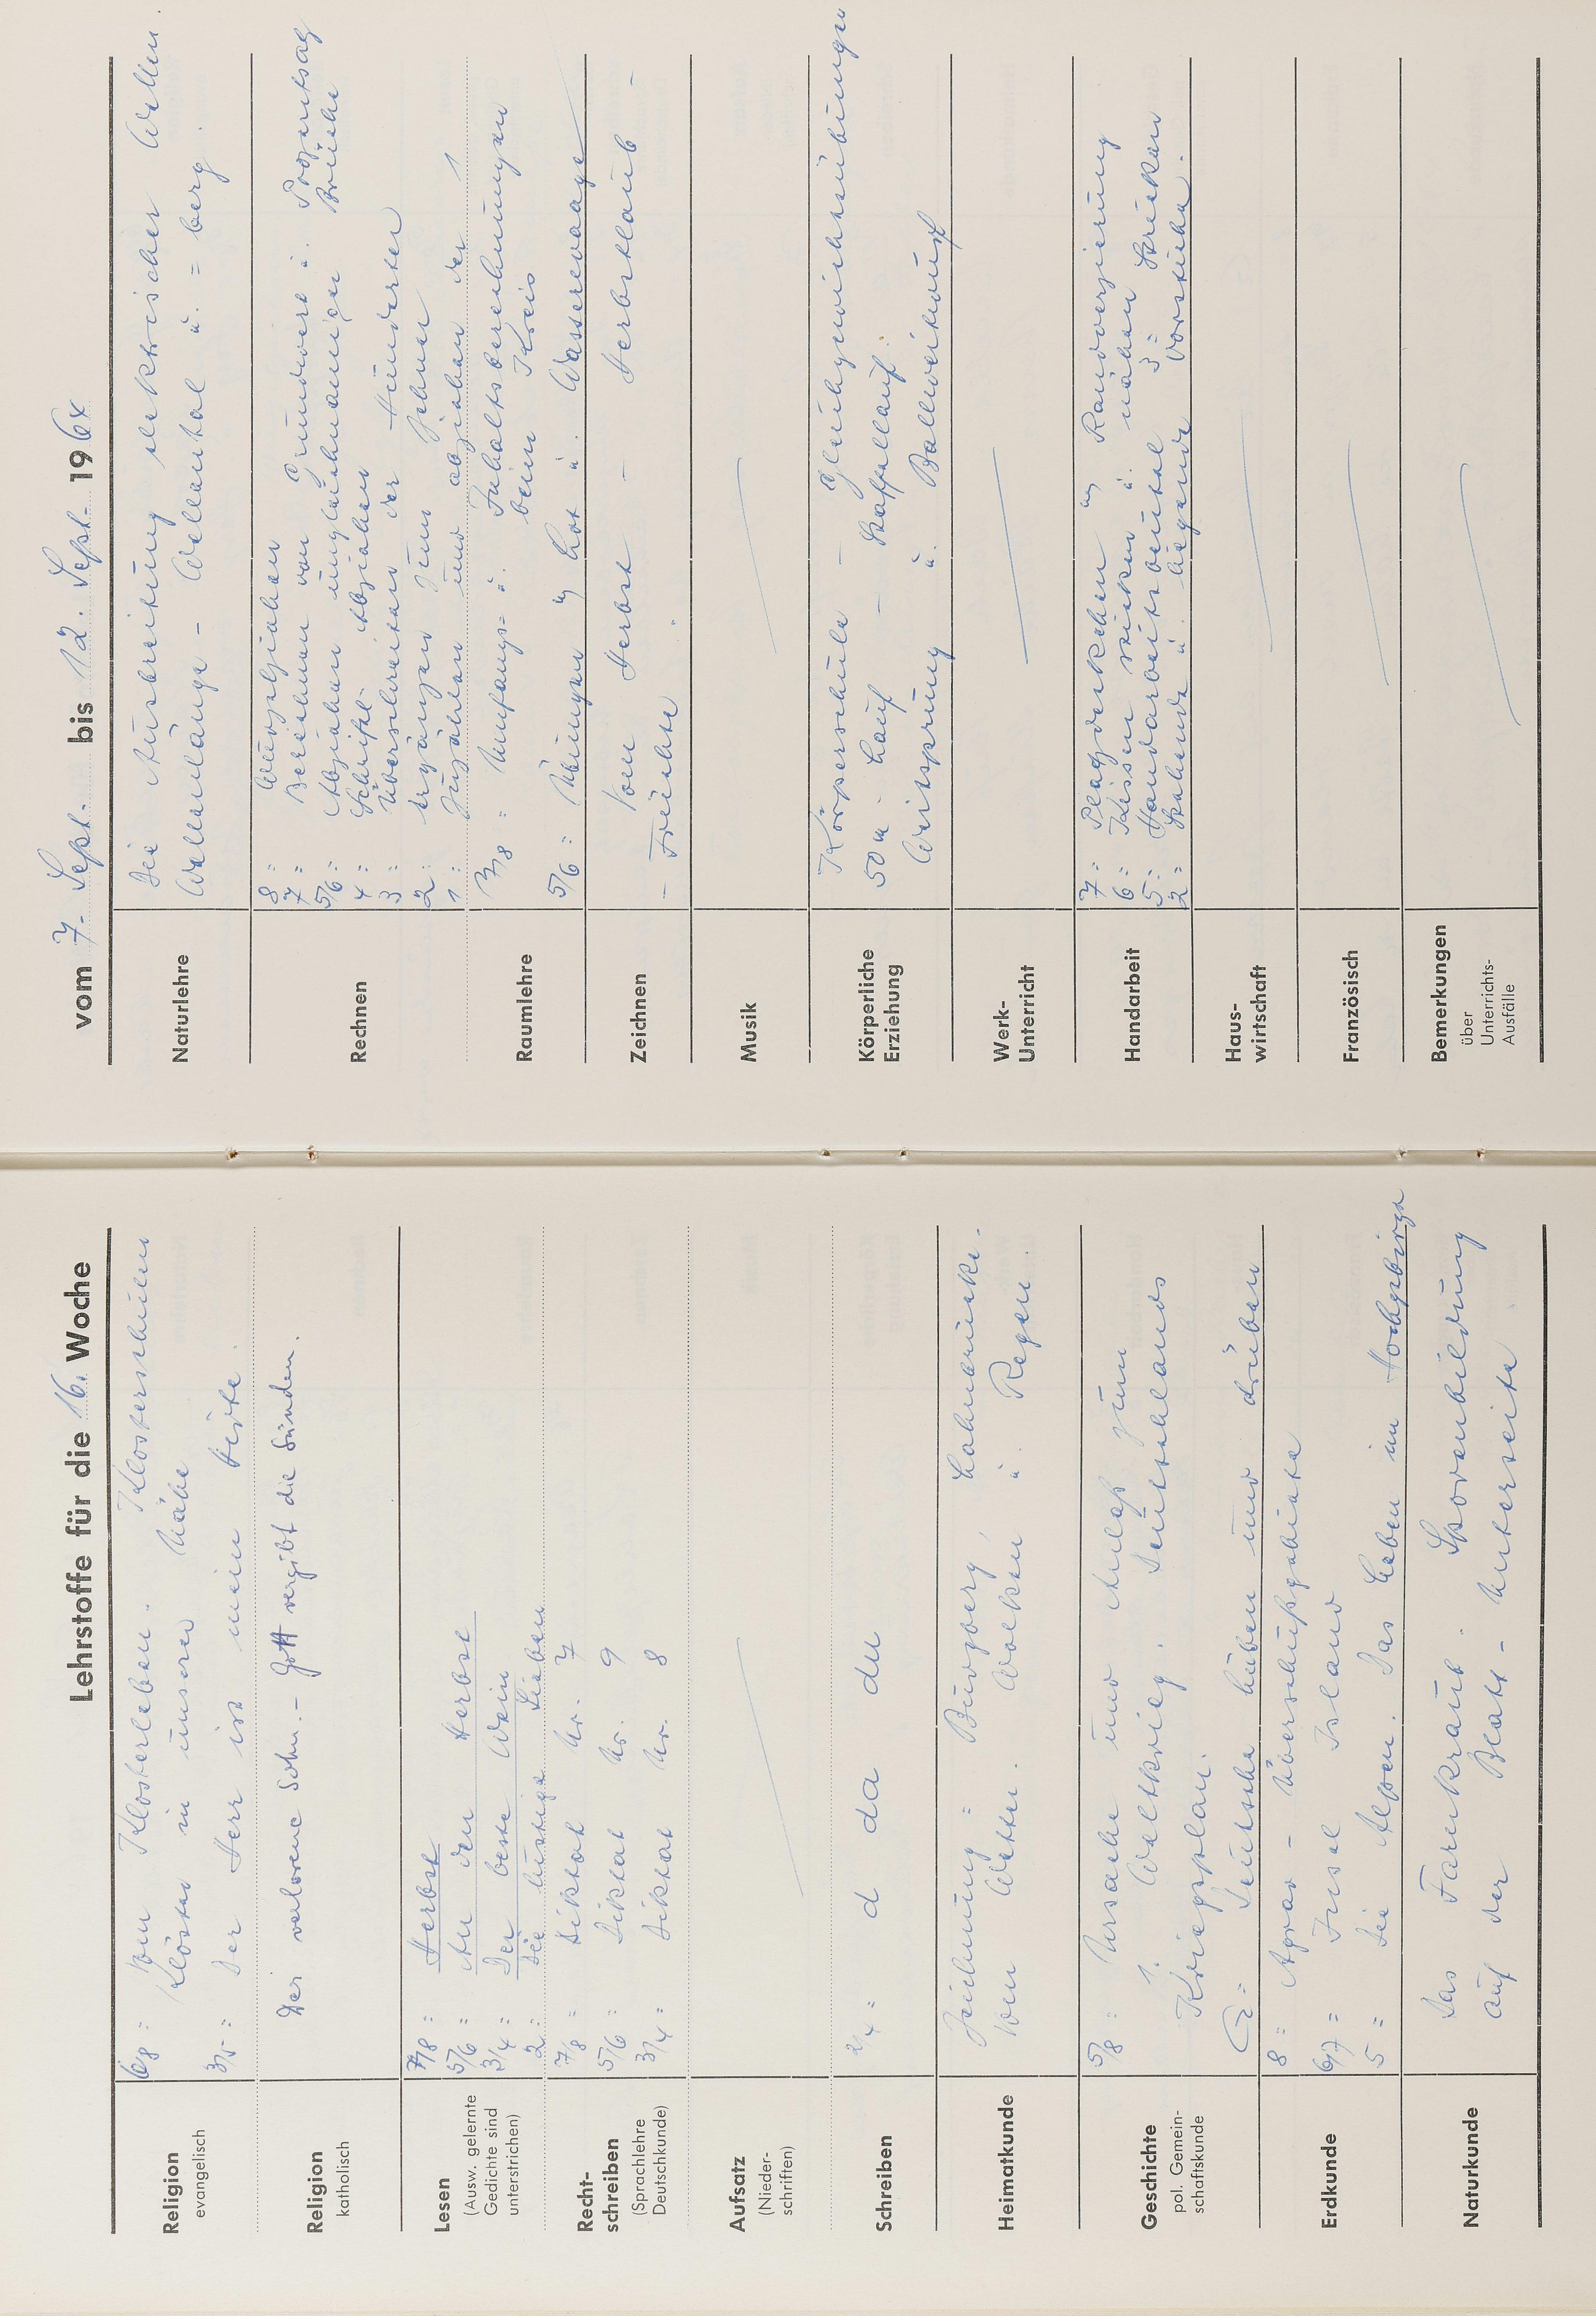 Lehrstoffe für die 16. Woche
Religion
evangelisch
6/8 = Vom Klosterleben. Klosterschulen
Klöster in unserer Nähe
3/5 = Der Herr ist mein Hirte.
Religion
katholisch
Der verlorene Sohn. – Gott vergibt die Sünden.
Lesen
(Ausw. gelernte
Gedichte sind
unterstrichen)
7/8 = Herbst
5/6 = An den Herbst
3/4 = Der beste Wein
2 = Die lustigen Sieben
Recht-
schreiben
(Sprachlehre
Deutschkunde)
7/8 = Diktat Nr. 7
5/6 = Diktat Nr. 9
3/4 = Diktat Nr. 8
Aufsatz
(Nieder-
schriften)
Schreiben
2/4 = d da du
Heimatkunde
Zeichnung = Burgberg, Lahnbrücke.
Vom Wetter. Wolken u. Regen.
Geschichte
pol. Gemein-
schaftskunde
5/8 = Ursache und Anlaß zum
1. Weltkrieg. Deutschlands
Kriegsplan.
G = Deutsche hüben und drüben
Erdkunde
8 = Agrar- Überschußgebiete
6/7 = Insel Island
5 = Die Alpen. Das Leben im Hochgebirge
Naturkunde
Das Farnkraut. Sporenbildung
auf der Blatt- Unterseite
vom 7. Sept. bis 12. Sept. 1964
Naturlehre
Die Ausbreitung elektrischer Wellen.
Wellenlänge – Wellental u. = berg.
Rechnen
8 = Wurzelziehen
7 = Berechnen von Grundwert u. Prozentsatz
5/6 = Abziehen ungleichnamiger Brüche
4 = Schriftl. Abziehen
3 = Überschreiten der Hunderter
2 = ergänzen zum Zehner
1 = Zuzählen und abziehen der 1
Raumlehre
7/8 = Umfangs- u. Inhaltsberechnungen
beim Kreis
5/6 = Übungen Lot u. Wasserwaage
Zeichnen
Vom Herbst – Herbstlaub –
– Früchte.
Musik
Körperliche
Erziehung
Körperschule – Gleichgewichtsübungen
50 m - Lauf – Staffellauf.
Weitsprung u. Ballweitwurf
Werk-
Unterricht
Handarbeit
7 = Platzdeckchen Randverzierung
6 = Kissen sticken u. nähen
5 = Handarbeitsbeutel 3 = Stricken
2 = Stehende u. liegende Vorstiche.
Haus-
wirtschaft
Französisch
Bemerkungen
über
Unterrichts-
Ausfälle